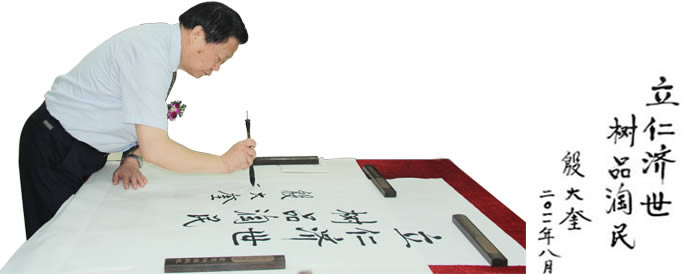 立仁济世
树品淘民
殷大奎
立仁济世
树品淘民
殷大奎
二〇一一年八月